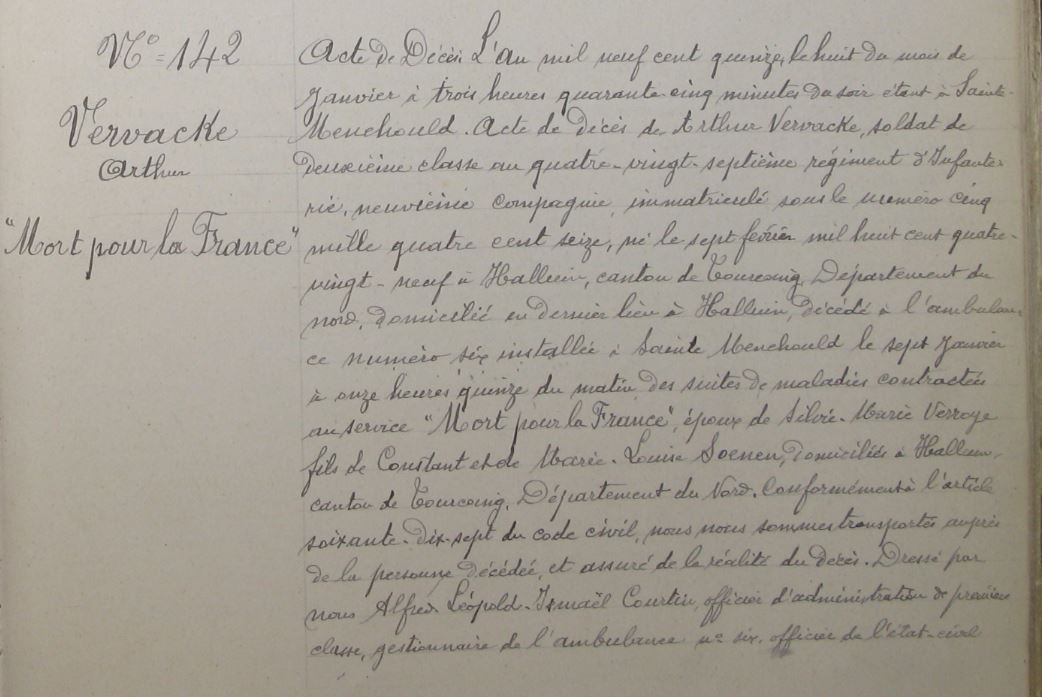 N° = 142
Vervacke
Arthur
"Mort pour la France"
Acte de Décès L'an mil neuf cent quinze, le huit du mois de
Janvier à trois heures quarante-cinq minutes du soir étant à Sainte-
Menehould. Acte de décès de Arthur Vervacke, soldat de
deuxième classe au quatre-vingt-septième régiment d'Infante-
rie, neuvième compagnie, immatriculé sous le numéro cinq
mille quatre cent seize, né le sept février mil huit cent quatre-
vingt-neuf à Halluin, canton de Tourcoing, Département du
nord, domicilié en dernier lieu à Halluin, décédé à l'ambulan-
ce numéro six installée à Sainte Menehould le sept Janvier
à onze heures quinze du matin des suites de maladies contractées
au service "Mort pour la France", époux de Silvie-Marie Verroye
fils de Constant et de Marie-Louise Soenen, domiciliés à Halluin,
canton de Tourcoing, Département du Nord. Conformément à l'article
soixante-dix-sept du code civil, nous nous sommes transportés auprès
de la personne décédée, et assuré de la réalité du décès. Dressé par
nous Alfred Léopold-Ismaël Courtin, officier d'administration de première
classe, gestionnaire de l'ambulance n° six, officier de l'état-civil